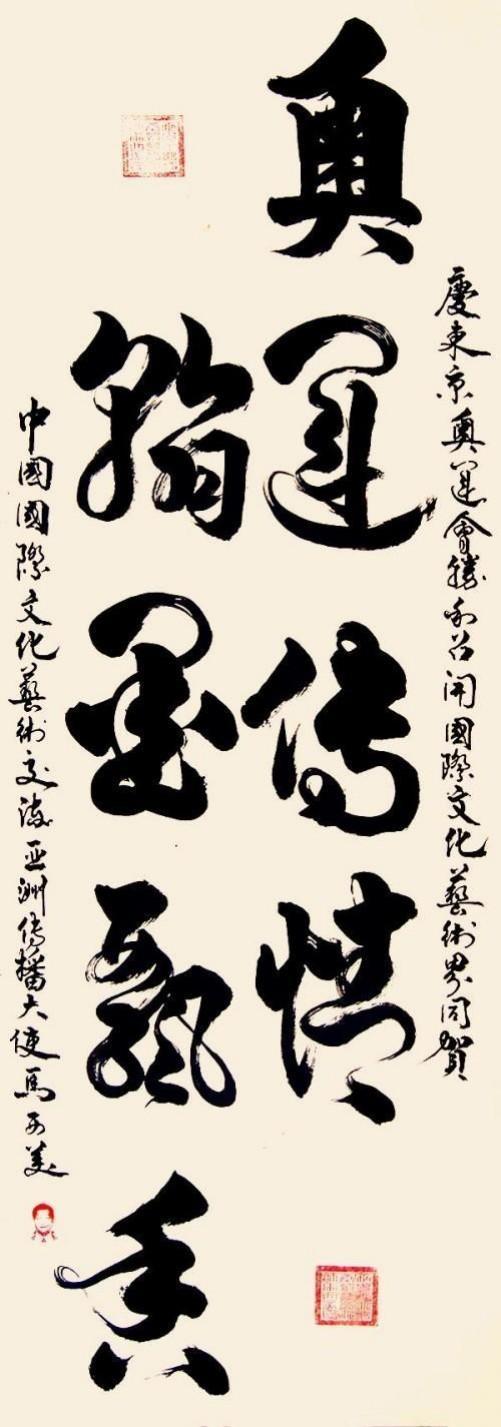 慶東京奧運會勝利召開國際文化藝術界同賀
奧運傳情
翰墨飄香
中國國際文化藝術交流亞洲傳播大使馬美